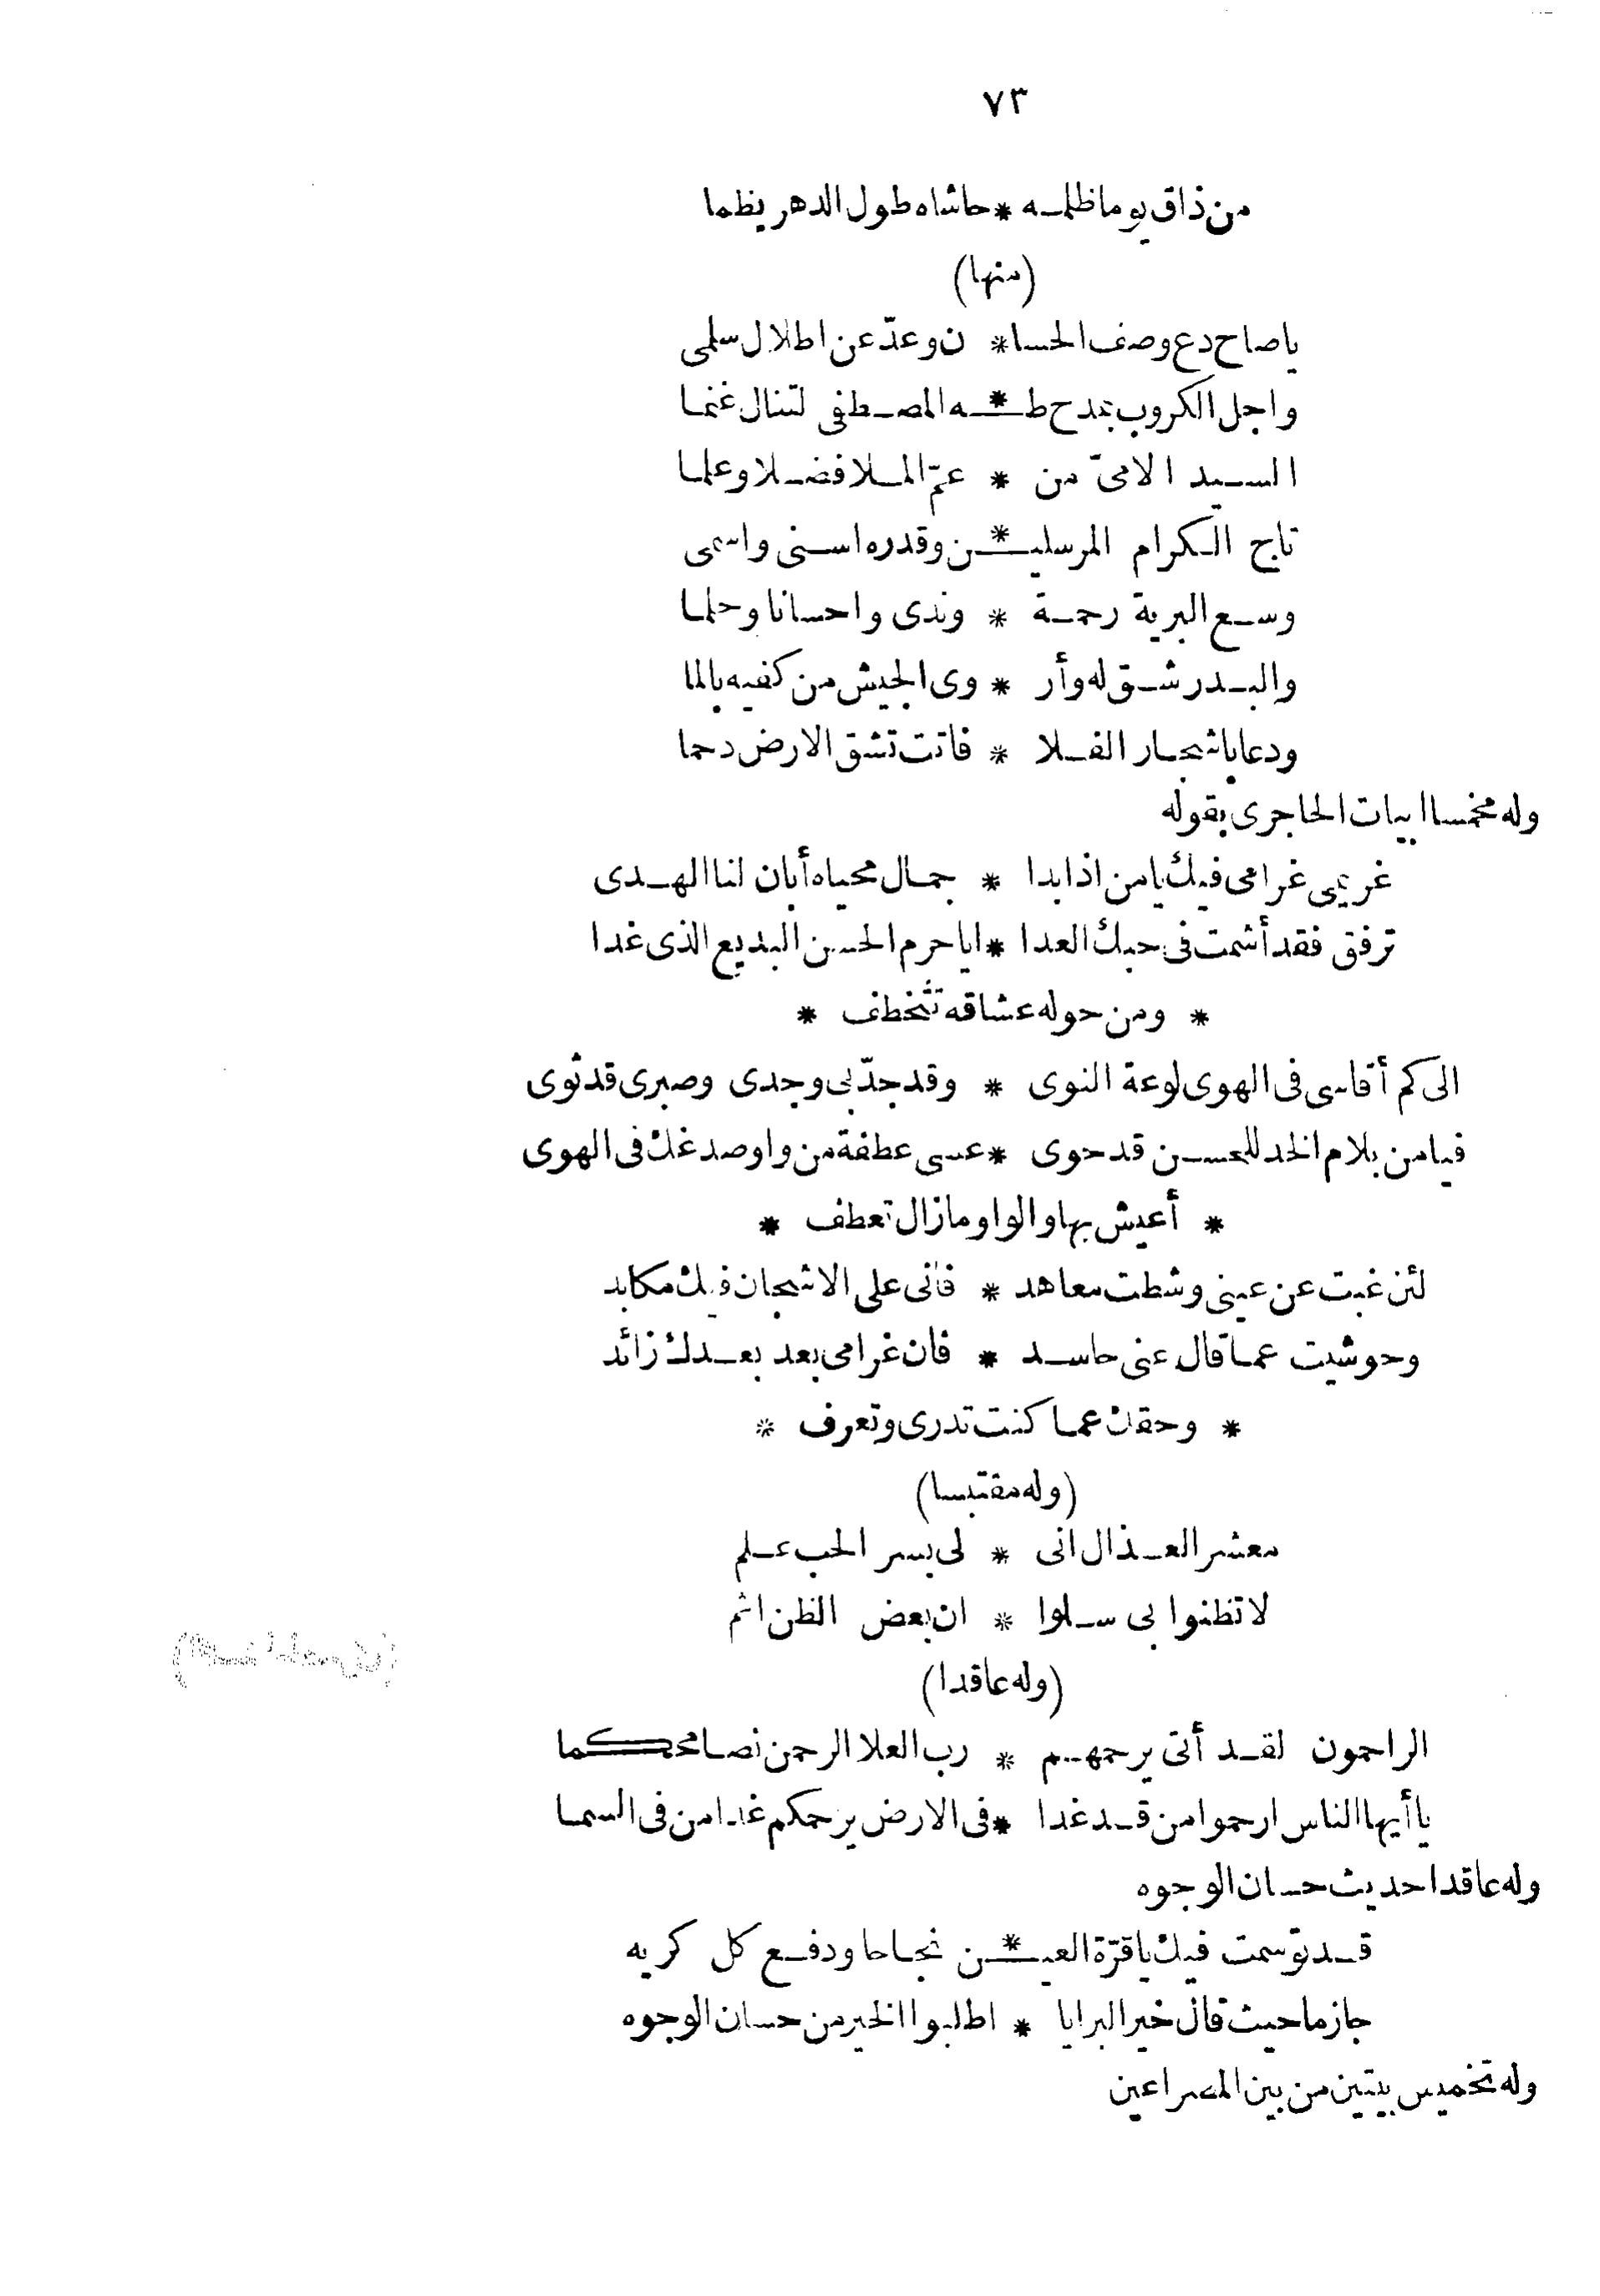 ٧٣
من ذاق يوما ظلمه * حاشاه طول الدهر يظما
(منها)
يا صاح دع وصف الحسا * ن وعدّ عن اطلال سلمى
واجل الكروب بمدح طـ * ـه المصطفى لتنال غنما
السيد الامىّ من * عمّ الملا فضلا وعلما
تاج الكرام المرسليـ * ـن وقدره اسنى واسمى
وسع البرية رحمة * وندى واحسانا وحلما
والبدر شق له وأر * وى الجيش من كفيه بالما
ودعا باشجار الفلا * فاتت تشق الارض دحما
وله مخمسا ابيات الحاجرى بقوله
غريمى غرامى فيك يا من اذا بدا * جمال محياه أبان لنا الهدى
ترفق فقد أشمت فى حبك العدا * ايا حرم الحسن البديع الذى غدا
* ومن حوله عشاقه تتخطف *
الى كم أقاسى فى الهوى لوعة النوى * وقد جدّ بى وجدى وصبرى قد ثوى
فيا من بلام الخد للحسن قد حوى * عسى عطفة من واو صدغك فى الهوى
* أعيش بها والواو ما زال تعطف *
لئن غبت عن عينى وشطت معاهد * فانى على الاشجان فيك مكابد
وحوشيت عما قال عنى حاسد * فان غرامى بعد بعدك زائد
* وحقك عما كنت تدرى وتعرف *
(وله مقتبسا)
معشر العذال انى * لى بسر الحب علم
لا تظنوا بى سلوا * ان بعض الظن اثم
(وله عاقدا)
الراحمون لقد أتى يرحمهم * رب العلا الرحمن نصا محكما
يا أيها الناس ارحموا من قد غدا * فى الارض يرحمكم غدا من فى السما
وله عاقدا حديث حسان الوجوه
قد توسمت فيك يا قرّة العيـ * ـن نجاحا ودفع كل كريه
جازما حيث قال خير البرايا * اطلبوا الخير من حسان الوجوه
وله تخميس بيتين من بين المصراعين